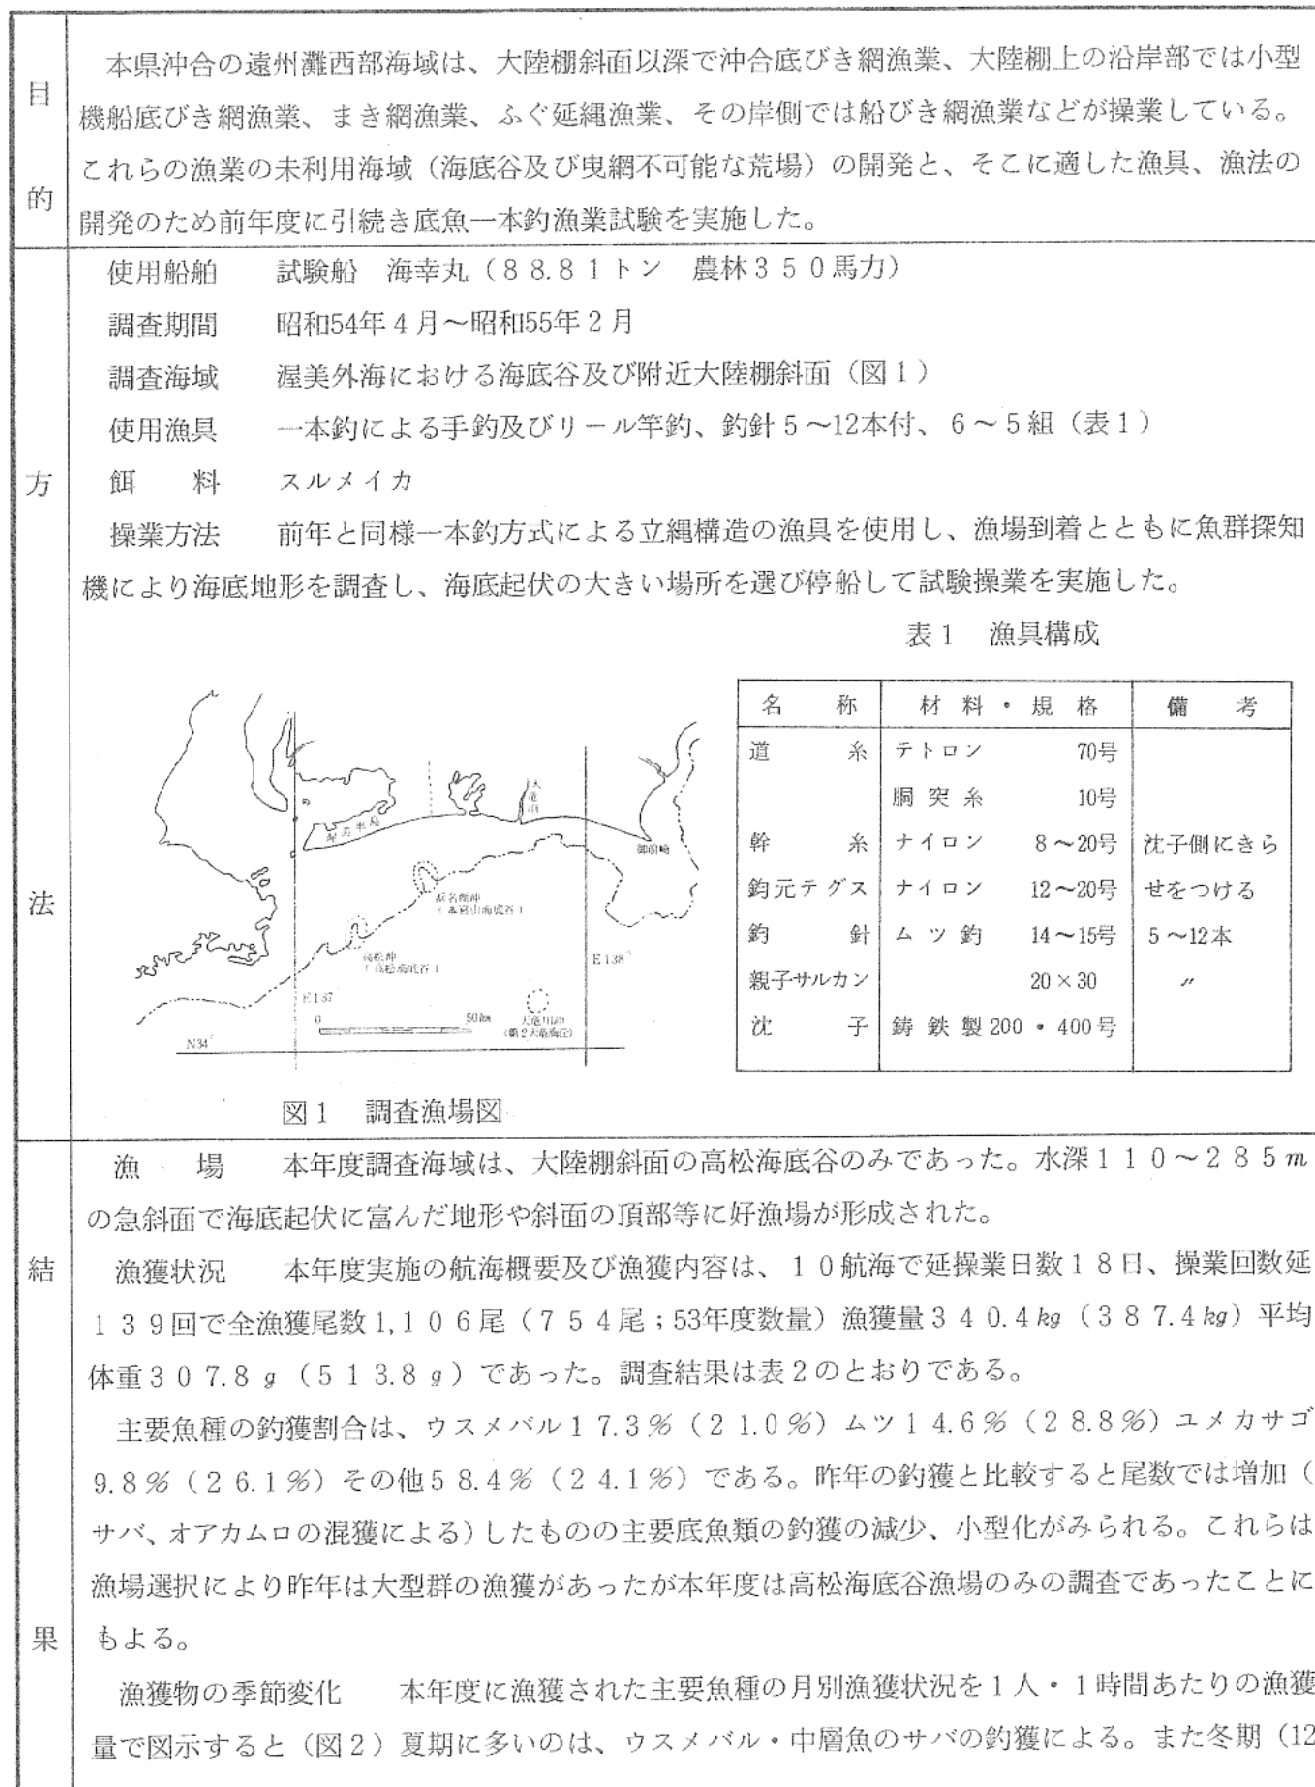 目的
本県沖合の遠州灘西部海域は、大陸棚斜面以深で沖合底びき網漁業、大陸棚上の沿岸部では小型
機船底びき網漁業、まき網漁業、ふぐ延縄漁業、その岸側では船びき網漁業などが操業している。
これらの漁業の未利用海域（海底谷及び曳網不可能な荒場）の開発と、そこに適した漁具、漁法の
開発のため前年度に引続き底魚一本釣漁業試験を実施した。
方法
使用船舶　試験船　海幸丸（88.81トン　農林350馬力）
調査期間　昭和54年4月～昭和55年2月
調査海域　渥美外海における海底谷及び附近大陸棚斜面（図1）
使用漁具　一本釣による手釣及びリール竿釣、釣針5～12本付、6～5組（表1）
餌　料　スルメイカ
操業方法　前年と同様一本釣方式による立縄構造の漁具を使用し、漁場到着とともに魚群探知
機により海底地形を調査し、海底起伏の大きい場所を選び停船して試験操業を実施した。
表1　漁具構成
名　称　材料・規格　備　考
道　糸　テトロン　70号
胴突糸　10号
幹　糸　ナイロン　8～20号　沈子側にきら
鈎元テグス　ナイロン　12～20号　せをつける
鈎　針　ムツ鈎　14～15号　5～12本
親子サルカン　20×30　〃
沈　子　鋳鉄製200・400号
渥美半島
天竜川
御前崎
浜名湖沖
高松沖
（高松海底谷）
E137°
E138°
0　50km
天竜川沖
（第2天竜海丘）
N34°
図1　調査漁場図
結果
漁　場　本年度調査海域は、大陸棚斜面の高松海底谷のみであった。水深110～285m
の急斜面で海底起伏に富んだ地形や斜面の頂部等に好漁場が形成された。
漁獲状況　本年度実施の航海概要及び漁獲内容は、10航海で延操業日数18日、操業回数延
139回で全漁獲尾数1,106尾（754尾；53年度数量）漁獲量340.4kg（387.4kg）平均
体重307.8g（513.8g）であった。調査結果は表2のとおりである。
主要魚種の釣獲割合は、ウスメバル17.3％（21.0％）ムツ14.6％（28.8％）ユメカサゴ
9.8％（26.1％）その他58.4％（24.1％）である。昨年の釣獲と比較すると尾数では増加（
サバ、オアカムロの混獲による）したものの主要底魚類の釣獲の減少、小型化がみられる。これらは
漁場選択により昨年は大型群の漁獲があったが本年度は高松海底谷漁場のみの調査であったことに
もよる。
漁獲物の季節変化　本年度に漁獲された主要魚種の月別漁獲状況を1人・1時間あたりの漁獲
量で図示すると（図2）夏期に多いのは、ウスメバル・中層魚のサバの釣獲による。また冬期（12